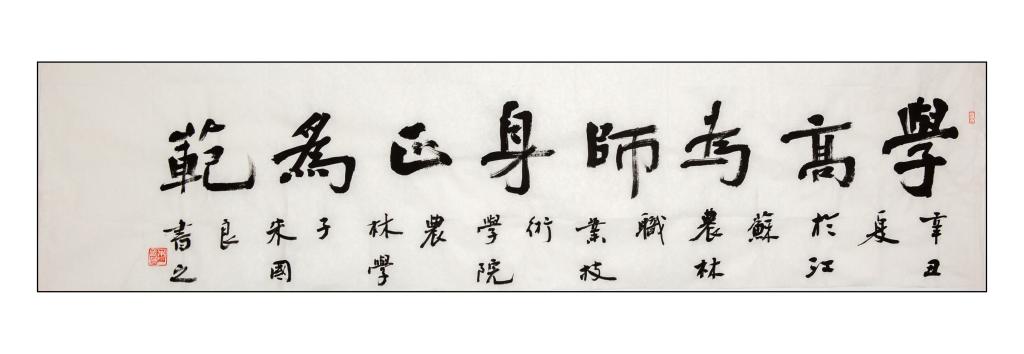 學高为師身正為範
辛丑夏於江蘇農林職業技術學院農林學子朱國良書之